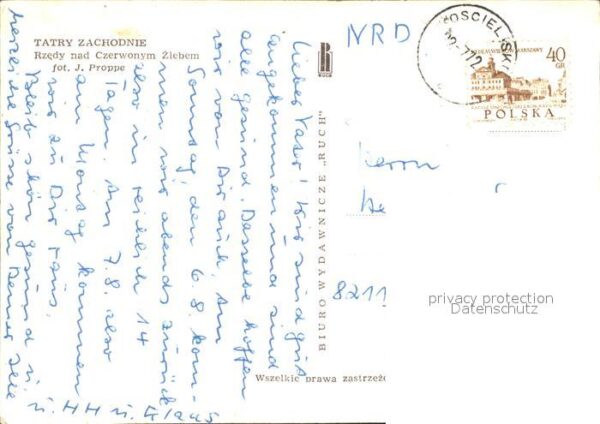 TATRY ZACHODNIE
Rzędy nad Czerwonym Żlebem
fot. J. Proppe
Lieber Vater! Wir sind gut
angekommen und sind
alle gesund. Dasselbe hoffen
wir von Dir auch. Am
Sonntag, den 6.8. kom-
men wir abends zurück
also in reichlich 14
Tagen. Am 7.8. also
am Montag kommen
wir zu Dir raus.
Bleib schön gesund u.
herzliche Grüsse von Deiner
u. HH u. Klaus
BIURO WYDAWNICZE "RUCH"
Wszelkie prawa zastrzeżo
NRD
KOSCIELISK
40
GR
POLSKA
Herrn
8211
privacy protection
Datenschutz